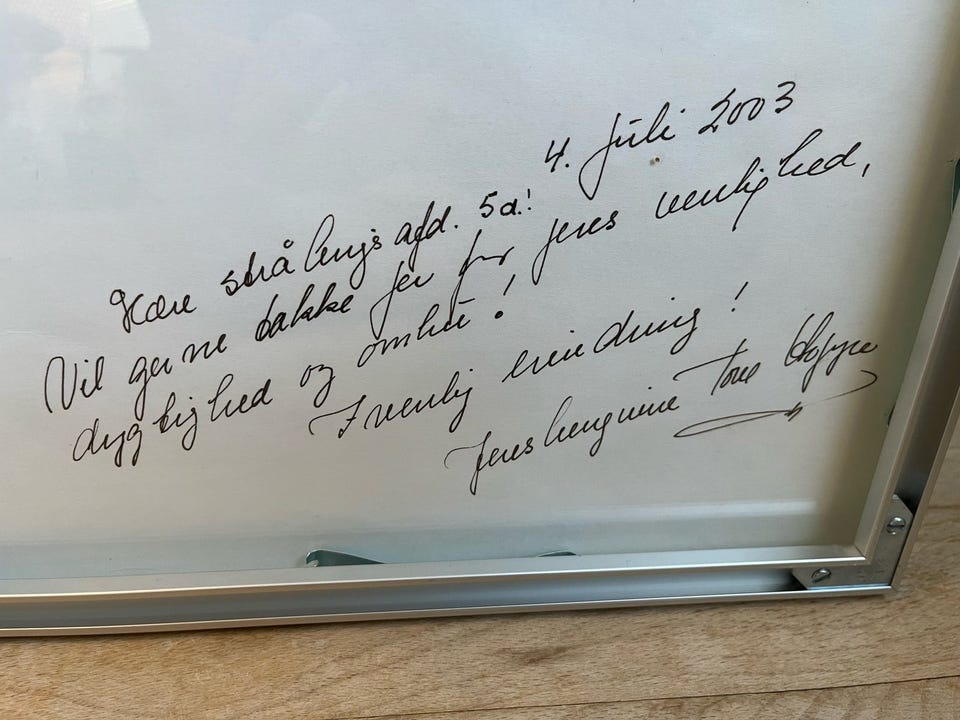 4. Juli 2003
Kære strålingsafd. 5a.!
Vil gerne takke jer for jeres venlighed,
dygtighed og omhu!
I venlig erindring!
Jeres hengivne Tove